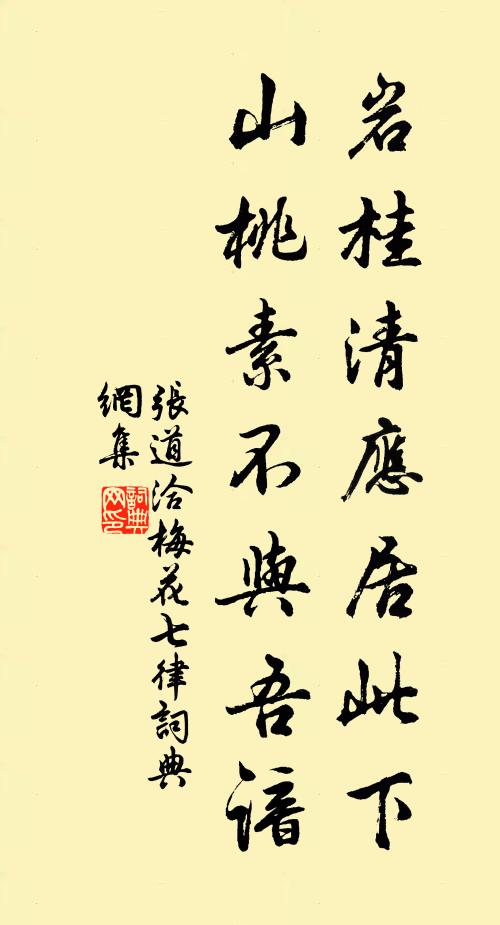 岩桂清應居此下
山桃素不與吾諳
張道洽梅花七律詞典
網集
詞典
网印